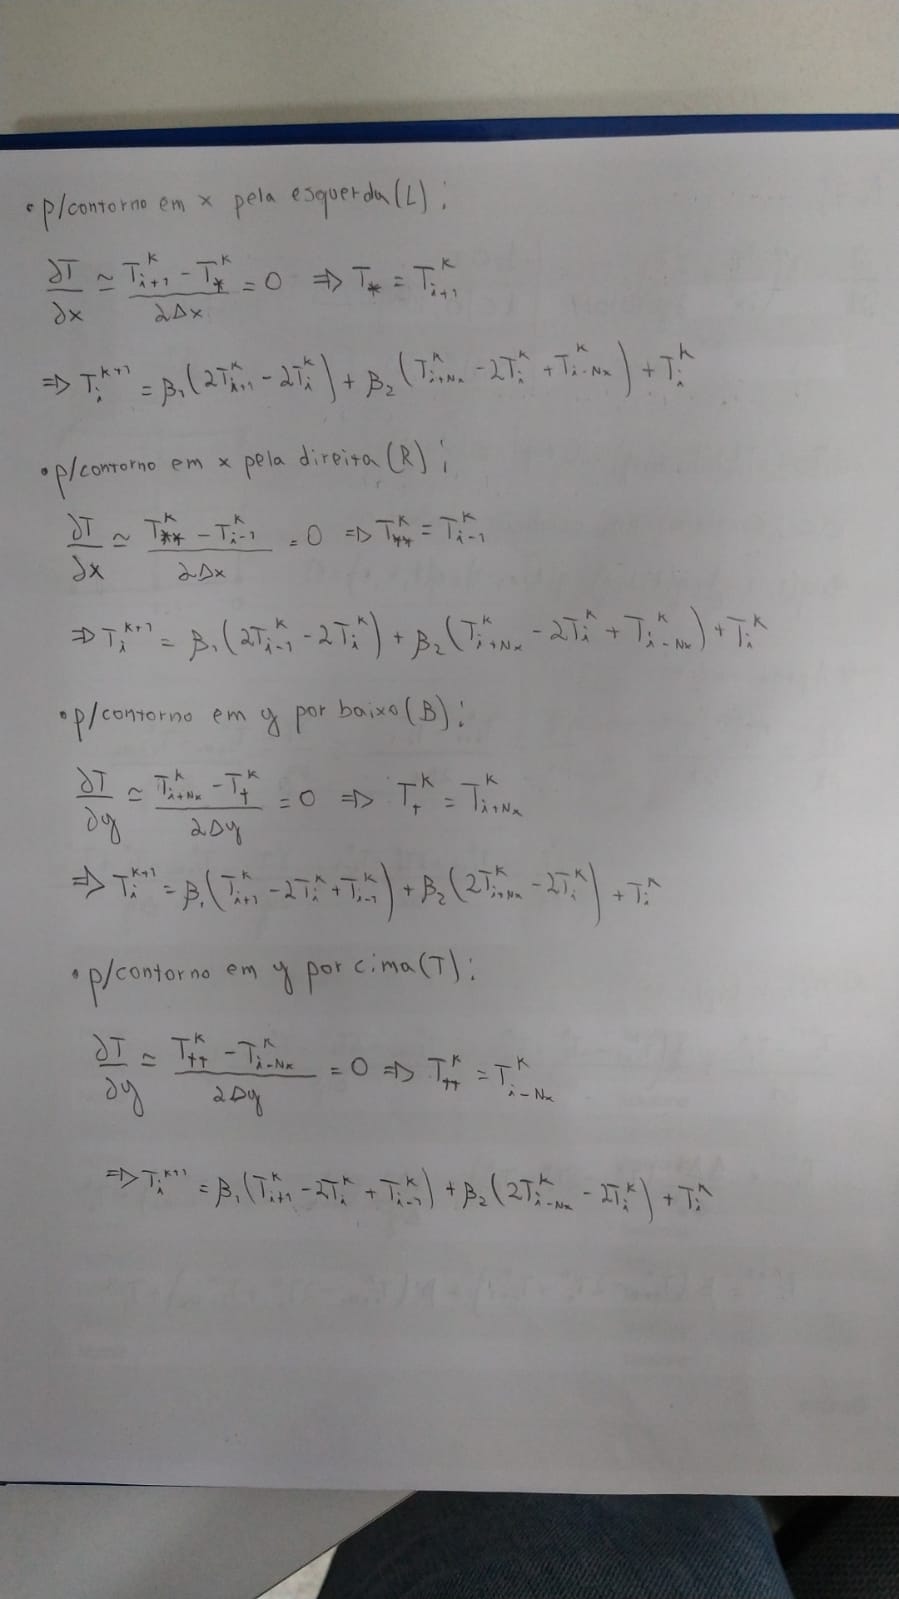 • p/contorno em x pela esquerda (L):
∂T/∂x ≃ (T_{i+1}^k - T_*^k)/(2Δx) = 0 ⇒ T_* = T_{i+1}^k
⇒ T_i^{k+1} = β₁(2T_{i+1}^k - 2T_i^k) + β₂(T_{i+Nx}^k - 2T_i^k + T_{i-Nx}^k) + T_i^k
• p/contorno em x pela direita (R):
∂T/∂x ≃ (T_{**}^k - T_{i-1}^k)/(2Δx) = 0 ⇒ T_{**}^k = T_{i-1}^k
⇒ T_i^{k+1} = β₁(2T_{i-1}^k - 2T_i^k) + β₂(T_{i+Nx}^k - 2T_i^k + T_{i-Nx}^k) + T_i^k
• p/contorno em y por baixo (B):
∂T/∂y ≃ (T_{i+Nx}^k - T_+^k)/(2Δy) = 0 ⇒ T_+^k = T_{i+Nx}^k
⇒ T_i^{k+1} = β₁(T_{i+1}^k - 2T_i^k + T_{i-1}^k) + β₂(2T_{i+Nx}^k - 2T_i^k) + T_i^k
• p/contorno em y por cima (T):
∂T/∂y ≃ (T_{++}^k - T_{i-Nx}^k)/(2Δy) = 0 ⇒ T_{++}^k = T_{i-Nx}^k
⇒ T_i^{k+1} = β₁(T_{i+1}^k - 2T_i^k + T_{i-1}^k) + β₂(2T_{i-Nx}^k - 2T_i^k) + T_i^k